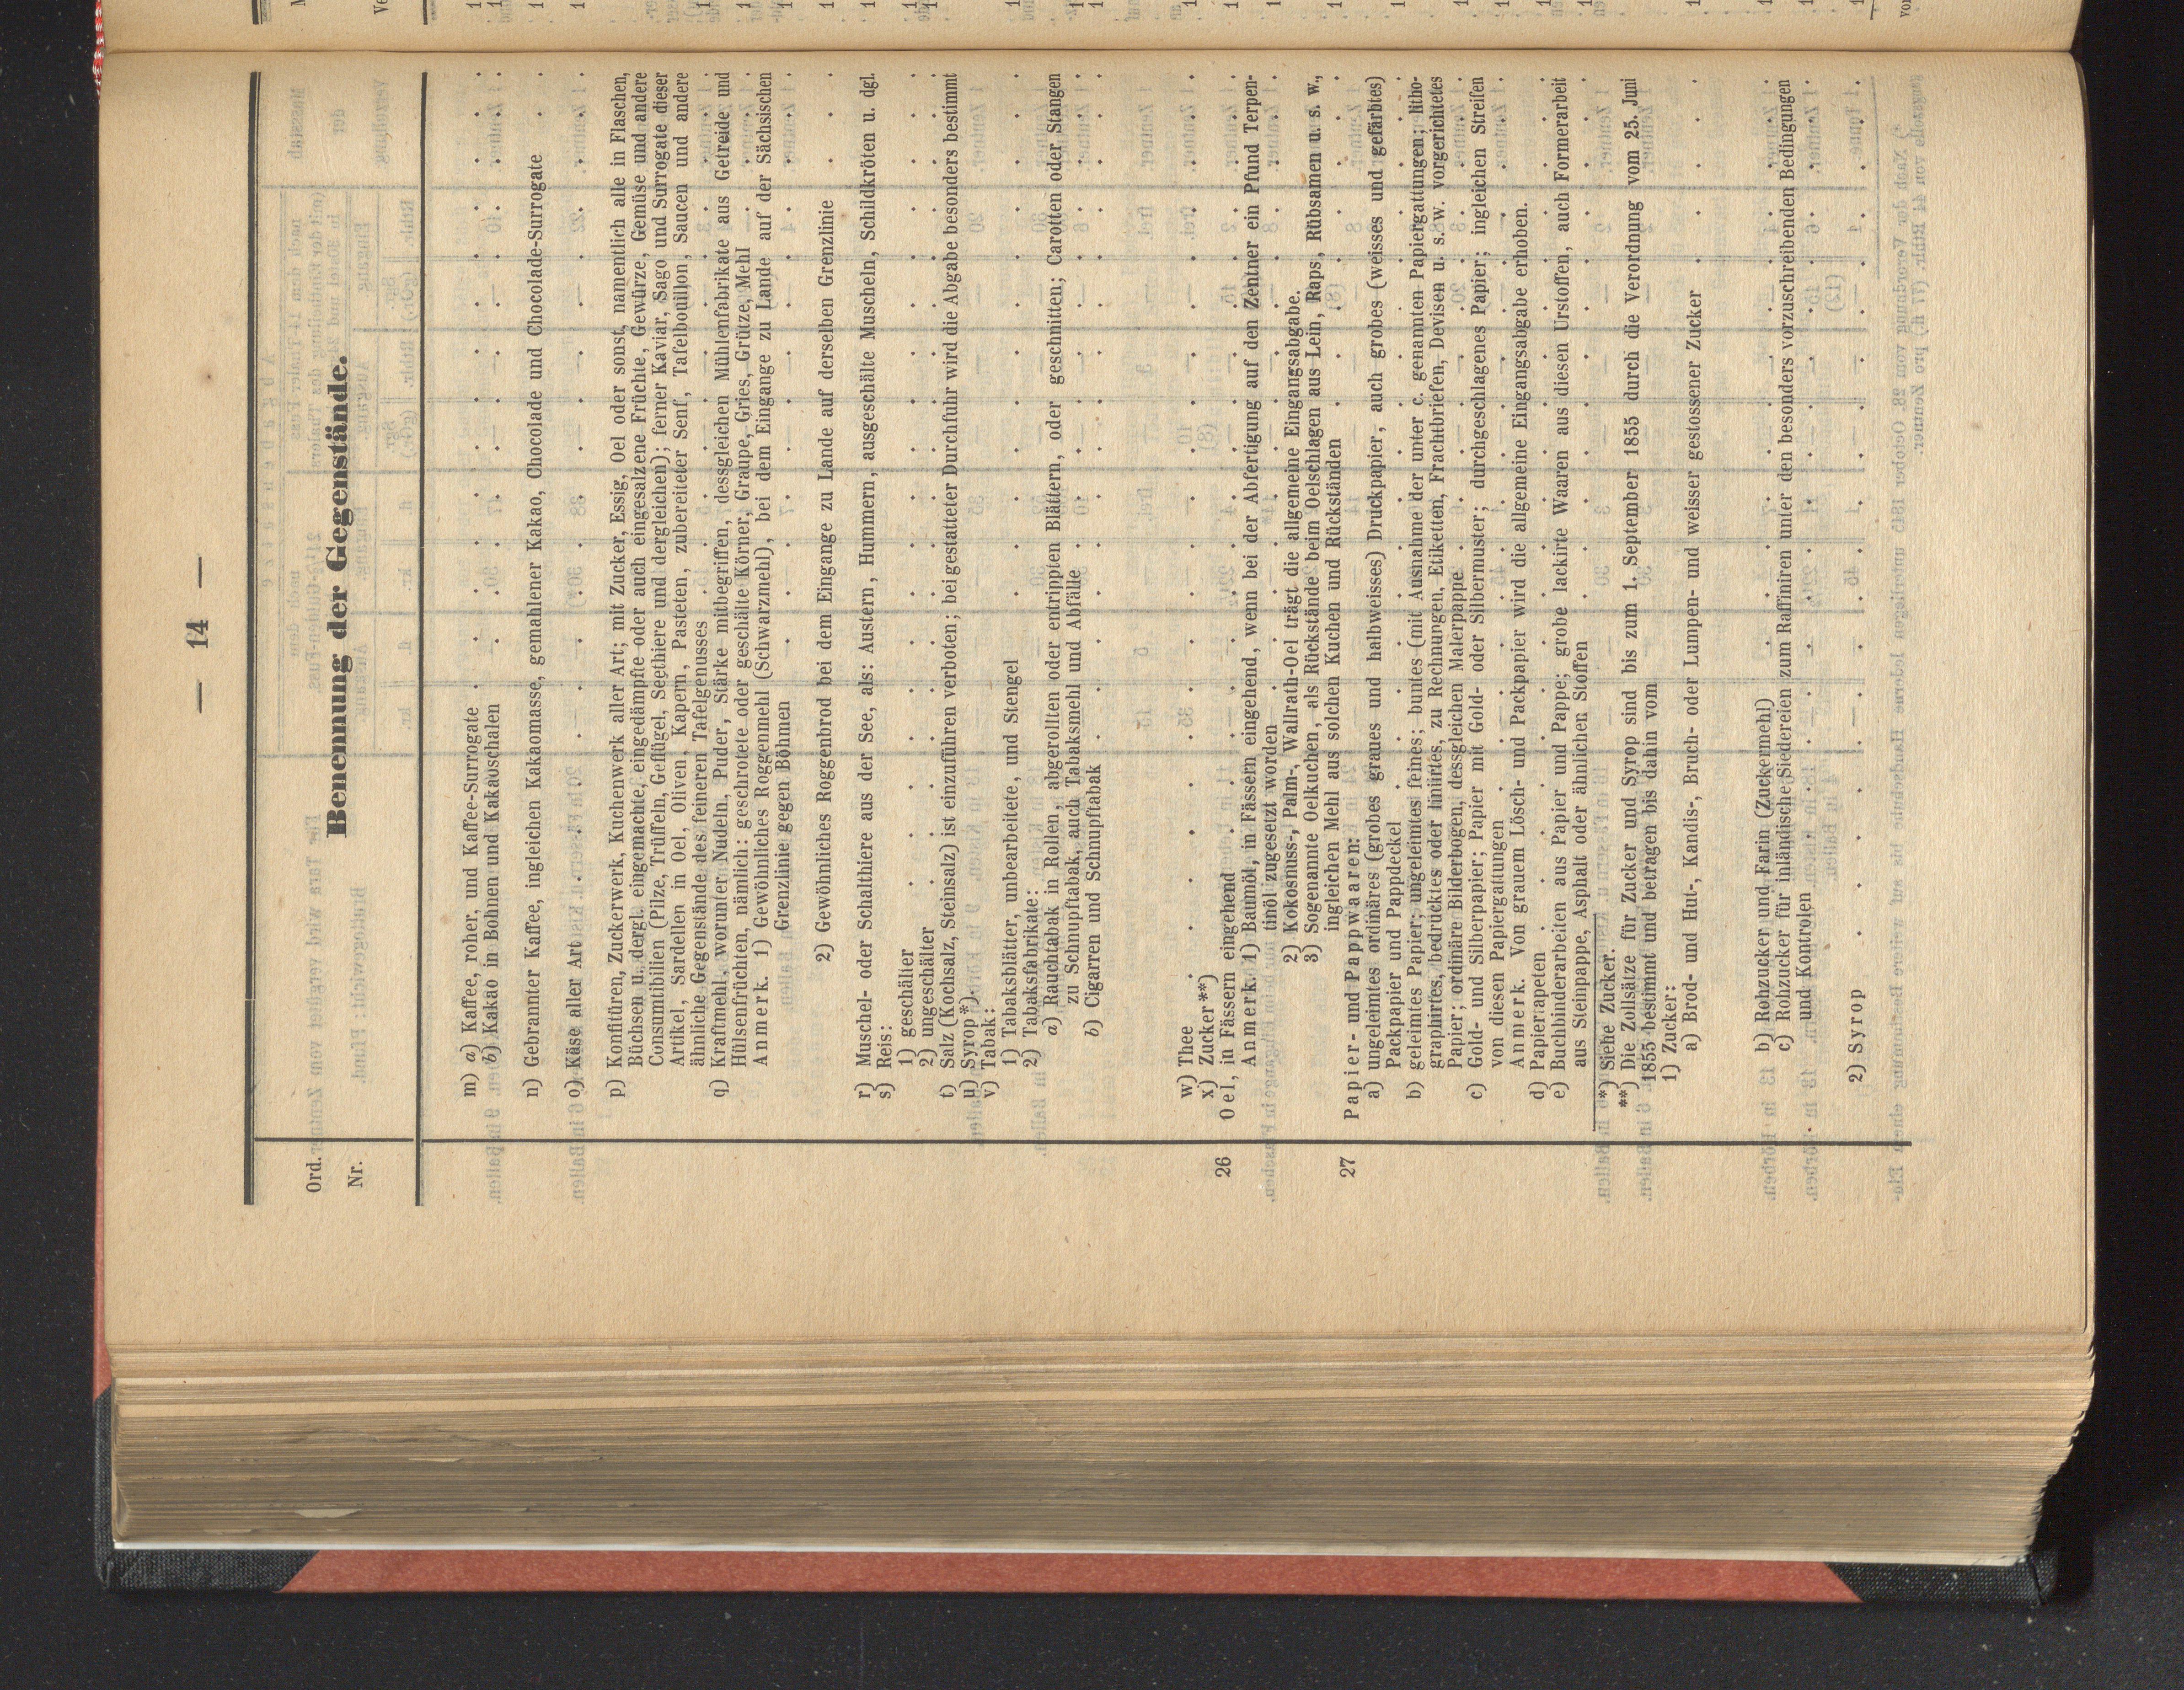 — 14 —
Ord.
Nr.
Benennung der Gegenstände.
m) a) Kaffee, roher, und Kaffee-Surrogate . . . . . . . . .
b) Kakao in Bohnen und Kakaoschalen . . . . . . . . .
n) Gebrannter Kaffee, ingleichen Kakaomasse, gemahlener Kakao, Chocolade und Chocolade-Surrogate . .
o) Käse aller Art . . . . . . . . . . . .
p) Konfitüren, Zuckerwerk, Kuchenwerk aller Art; mit Zucker, Essig, Oel oder sonst, namentlich alle in Flaschen,
Büchsen u. dergl. eingemachte, eingedämpfte oder auch eingesalzene Früchte, Gewürze, Gemüse und andere
Consumtibilien (Pilze, Trüffeln, Geflügel, Seethiere und dergleichen); ferner Kaviar, Sago und Surrogate dieser
Artikel, Sardellen in Oel, Oliven, Kapern, Pasteten, zubereiteter Senf, Tafelbouillon, Saucen und andere
ähnliche Gegenstände des feineren Tafelgenusses . . . . . . . .
q) Kraftmehl, worunter Nudeln, Puder, Stärke mitbegriffen, dessgleichen Mühlenfabrikate aus Getreide und
Hülsenfrüchten, nämlich: geschrotete oder geschälte Körner, Graupe, Gries, Grütze, Mehl . . .
Anmerk. 1) Gewöhnliches Roggenmehl (Schwarzmehl), bei dem Eingange zu Lande auf der Sächsischen
Grenzlinie gegen Böhmen . . . . . . . . .
2) Gewöhnliches Roggenbrod bei dem Eingange zu Lande auf derselben Grenzlinie . . .
r) Muschel- oder Schalthiere aus der See, als: Austern, Hummern, ausgeschälte Muscheln, Schildkröten u. dgl.
s) Reis:
1) geschälter . . . . . . . . . . . .
2) ungeschälter . . . . . . . . . . . .
t) Salz (Kochsalz, Steinsalz) ist einzuführen verboten; bei gestatteter Durchfuhr wird die Abgabe besonders bestimmt
u) Syrop*).
v) Tabak:
1) Tabaksblätter, unbearbeitete, und Stengel . . . . . . . .
2) Tabaksfabrikate:
a) Rauchtabak in Rollen, abgerollten oder entrippten Blättern, oder geschnitten; Carotten oder Stangen
zu Schnupftabak, auch Tabaksmehl und Abfälle . . . . . . .
b) Cigarren und Schnupftabak . . . . . . . . . .
w) Thee . . . . . . . . . . . . .
x) Zucker**)
26
Oel, in Fässern eingehend . . . . . . . . . . .
Anmerk. 1) Baumöl, in Fässern eingehend, wenn bei der Abfertigung auf den Zentner ein Pfund Terpen-
tinöl zugesetzt worden . . . . . . . . . .
2) Kokosnuss-, Palm-, Wallrath-Oel trägt die allgemeine Eingangsabgabe.
3) Sogenannte Oelkuchen, als Rückstände beim Oelschlagen aus Lein, Raps, Rübsamen u. s. w.,
ingleichen Mehl aus solchen Kuchen und Rückständen . . . . .
27
Papier- und Pappwaaren:
a) ungeleimtes ordinäres (grobes graues und halbweisses) Druckpapier, auch grobes (weisses und gefärbtes)
Packpapier und Pappdeckel . . . . . . . . . .
b) geleimtes Papier; ungeleimtes feines; buntes (mit Ausnahme der unter c. genannten Papiergattungen; litho-
graphirtes, bedrucktes oder liniirtes, zu Rechnungen, Etiketten, Frachtbriefen, Devisen u. s. w. vorgerichtetes
Papier; ordinäre Bilderbogen, dessgleichen Malerpappe . . . . . .
c) Gold- und Silberpapier; Papier mit Gold- oder Silbermuster; durchgeschlagenes Papier; ingleichen Streifen
von diesen Papiergattungen . . . . . . . . . .
Anmerk. Von grauem Lösch- und Packpapier wird die allgemeine Eingangsabgabe erhoben.
d) Papiertapeten . . . . . . . . . . . .
e) Buchbinderarbeiten aus Papier und Pappe; grobe lackirte Waaren aus diesen Urstoffen, auch Formerarbeit
aus Steinpappe, Asphalt oder ähnlichen Stoffen . . . . . . . .
*) Siehe Zucker.
**) Die Zollsätze für Zucker und Syrop sind bis zum 1. September 1855 durch die Verordnung vom 25. Juni
1853 bestimmt und betragen bis dahin vom
1) Zucker:
a) Brod- und Hut-, Kandis-, Bruch- oder Lumpen- und weisser gestossener Zucker . . . .
b) Rohzucker und Farin (Zuckermehl) . . . . . . . .
c) Rohzucker für inländische Siedereien zum Raffiniren unter den besonders vorzuschreibenden Bedingungen
und Kontrolen . . . . . . . . . . .
2) Syrop . . . . . . . . . . . .